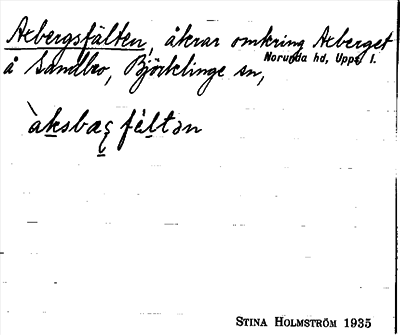 Axbergsfälten, åkrar omkring Axberget
å Sandbro, Björklinge sn,
Norunda hd, Upps. l.
àksbæȩ fèltən
STINA HOLMSTRÖM 1935